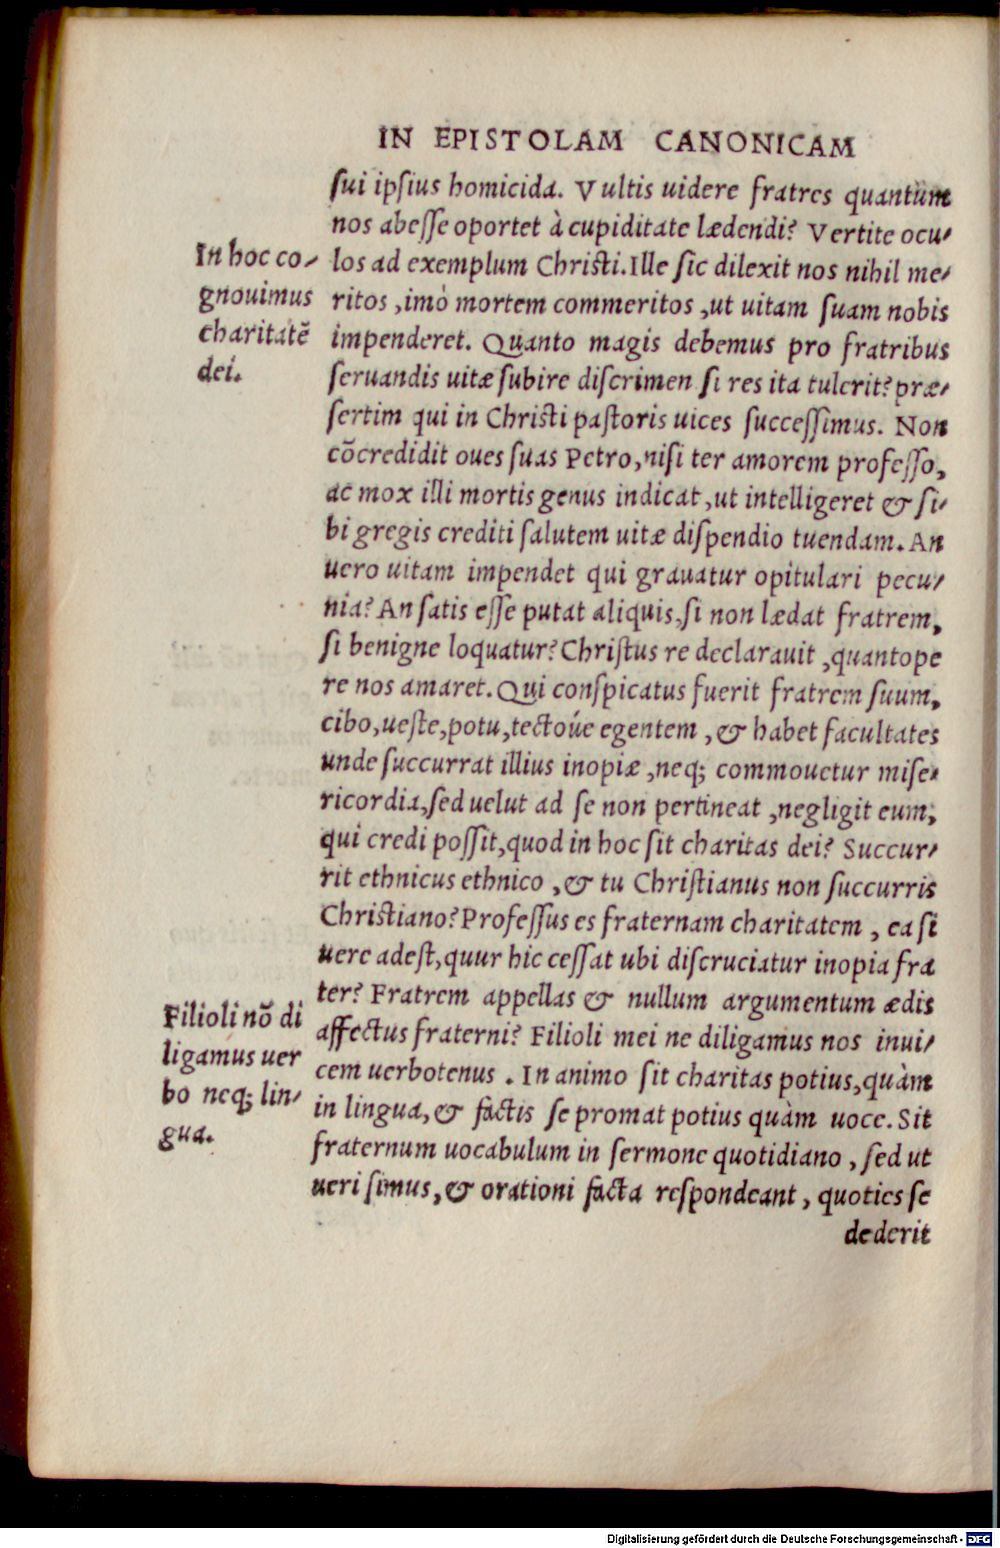 IN EPISTOLAM CANONICAM
sui ipsius homicida. Vultis uidere fratres quantũm
nos abesse oportet à cupiditate lædendi? Vertite ocu-
los ad exemplum Christi. Ille sic dilexit nos nihil me-
ritos, imò mortem commeritos, ut uitam suam nobis
impenderet. Quanto magis debemus pro fratribus
seruandis uitæ subire discrimen si res ita tulerit? præ-
sertim qui in Christi pastoris uices successimus. Non
cõcredidit oues suas Petro, nisi ter amorem professo,
ac mox illi mortis genus indicat, ut intelligeret & si-
bi gregis crediti salutem uitæ dispendio tuendam. An
uero uitam impendet qui grauatur opitulari pecu-
nia? An satis esse putat aliquis, si non lædat fratrem,
si benigne loquatur? Christus re declarauit, quantope
re nos amaret. Qui conspicatus fuerit fratrem suum,
cibo, ueste, potu, tectoúe egentem, & habet facultates
unde succurrat illius inopiæ, neq; commouetur mise-
ricordia, sed uelut ad se non pertineat, negligit eum,
qui credi possit, quod in hoc sit charitas dei? Succur-
rit ethnicus ethnico, & tu Christianus non succurris
Christiano? Professus es fraternam charitatem, ea si
uere adest, quur hic cessat ubi discruciatur inopia fra
ter? Fratrem appellas & nullum argumentum ædis
affectus fraterni? Filioli mei ne diligamus nos inui-
cem uerbotenus. In animo sit charitas potius, quàm
in lingua, & factis se promat potius quàm uoce. Sit
fraternum uocabulum in sermone quotidiano, sed ut
ueri simus, & orationi facta respondeant, quoties se
dederit
In hoc co-
gnouimus
charitatẽ
dei.
Filioli nõ di
ligamus uer
bo neq; lin-
gua.
Digitalisierung gefördert durch die Deutsche Forschungsgemeinschaft - DFG